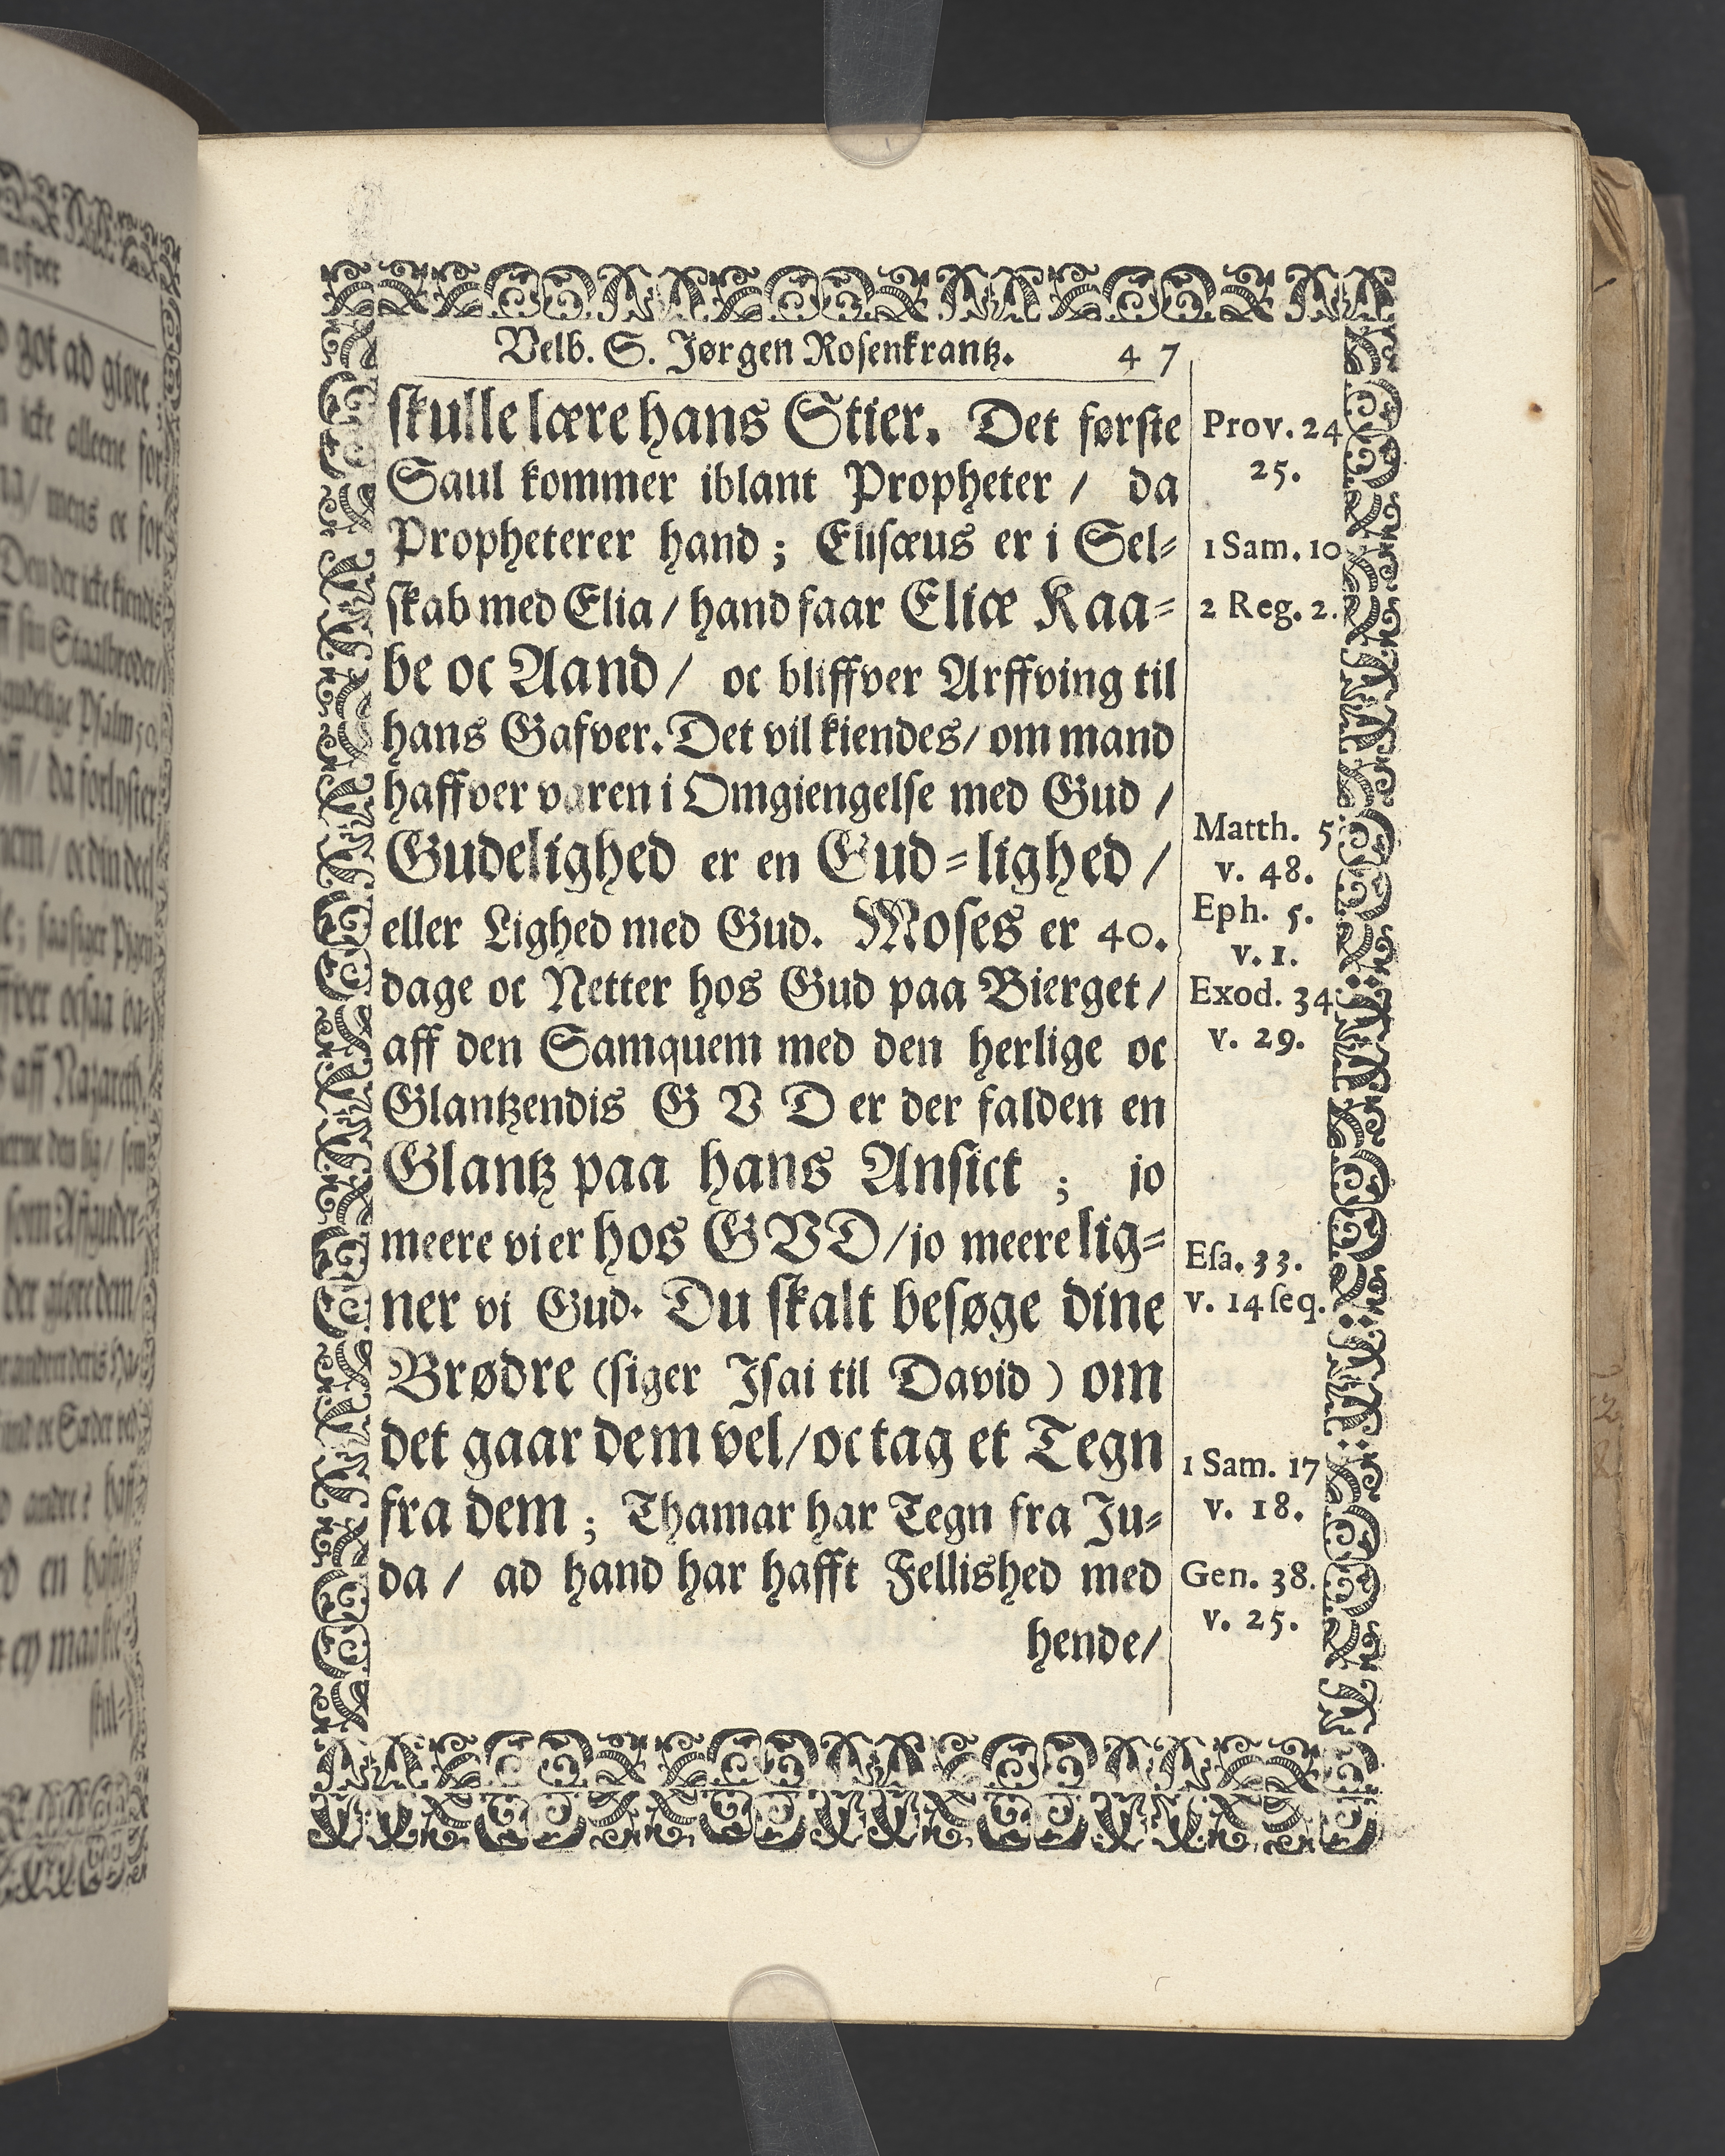 Velb. S. Jørgen Rosenkrantz. 47
skulle lære hans Stier. Det første
Saul kommer iblant Propheter / da
Propheterer hand ; Elisæus er i Sel-
skab med Elia / hand faar Eliæ Kaa-
be oc Aand / oc bliffver Arffving til
hans Gafver. Det vil kiendes / om mand
haffver varen i Omgiengelse med Gud /
Gudelighed er en Gud-lighed /
eller Lighed med Gud. Moses er 40.
dage oc Netter hos Gud paa Bierget /
aff den Samquem med den herlige oc
Glantzendis G V D er der falden en
Glantz paa hans Ansict ; jo
meere vi er hos GVD / jo meere lig-
ner vi Gud. Du skalt besøge dine
Brødre (siger Isai til David ) om
det gaar dem vel / oc tag et Tegn
fra dem ; Thamar har Tegn fra Ju-
da / ad hand har hafft Fellished med
hende /
Prov. 24
25.
1 Sam. 10
2 Reg. 2.
Matth. 5
v. 48.
Eph. 5.
v. 1.
Exod. 34
v. 29.
Esa. 33.
v. 14 seq.
1 Sam. 17
v. 18.
Gen. 38.
v. 25.